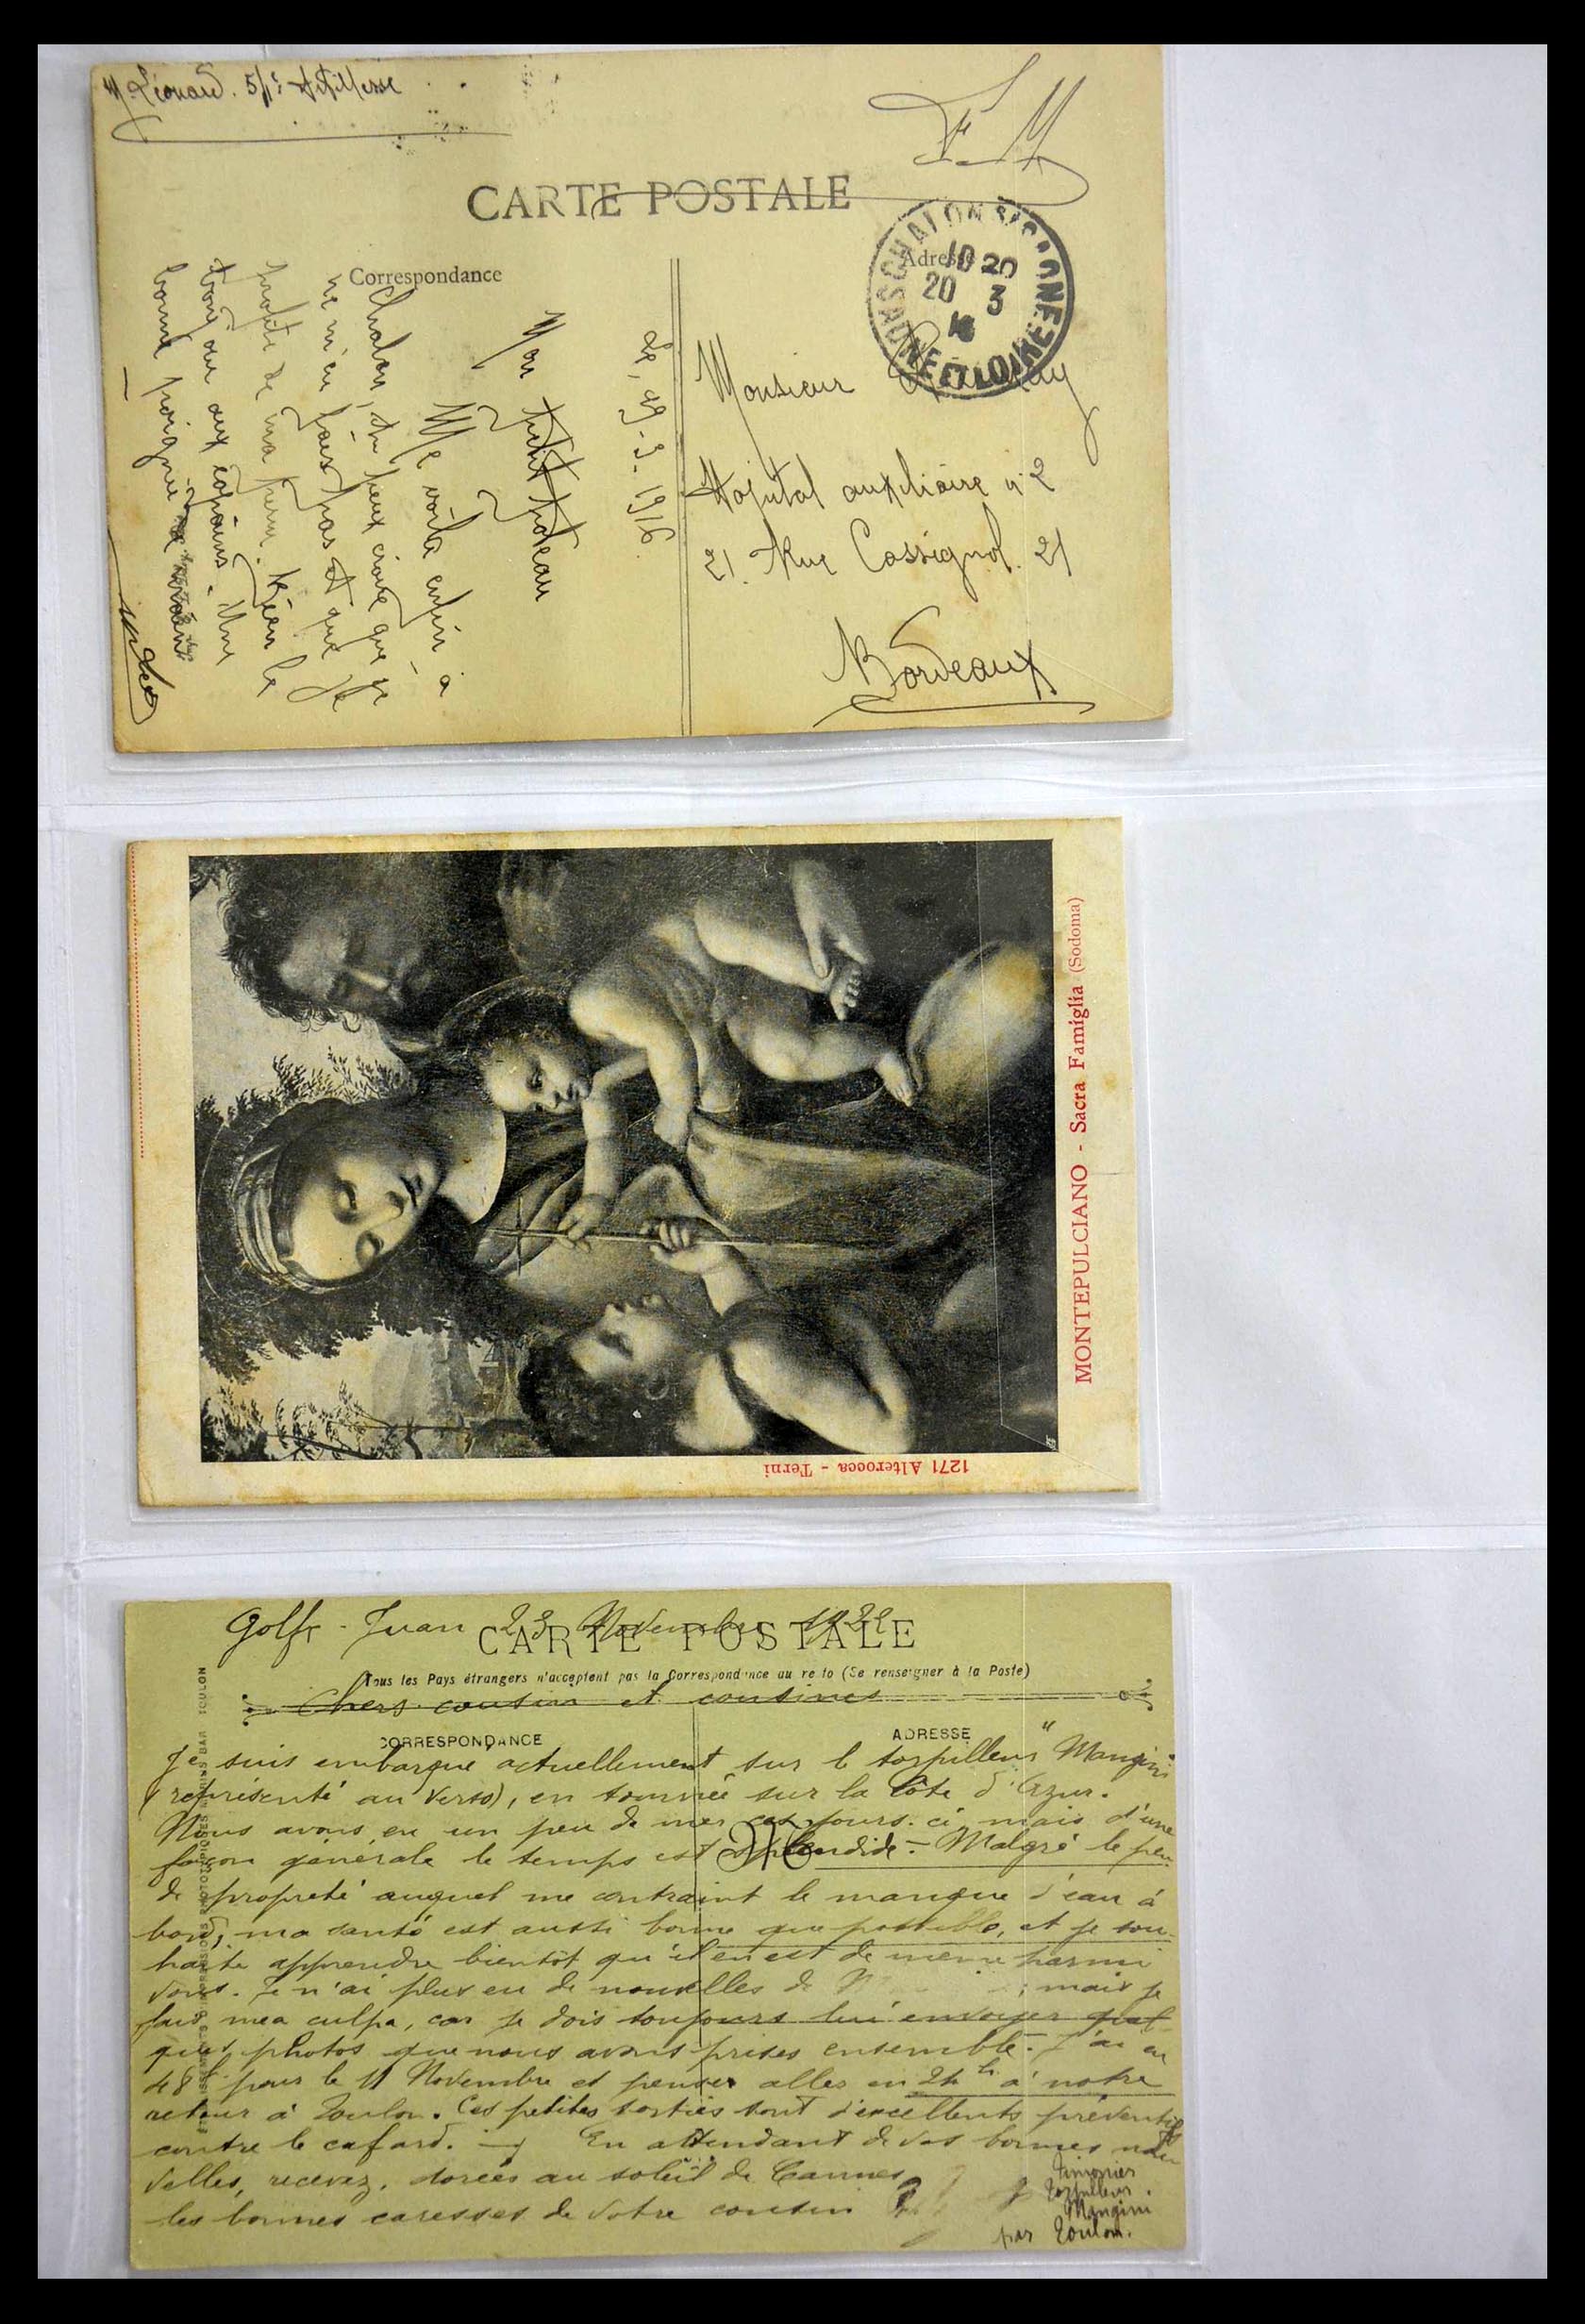 M. Léonard. 5/1è Artillerie
F. M
CARTE POSTALE
CHALON S/ SAONE
10 20
20 3
16
SAONE ET LOIRE
Adresse
Correspondance
Le, 19-3-1916.
Mon petit poteau
Me voilà enfin à
Chalon, tu peux croire que je
ne m'en fais pas et que je
profite de ma perm. Rien le
bonj. aux copains. Une
bonne poignée
Monsieur
Hopital auxiliaire n: 2
21. Rue Cassignol. 21
Bordeaux
MONTEPULCIANO - Sacra Famiglia (Sodoma)
1271 Alterocca - Terni
Golfe-Juan 23 Novembre
CARTE POSTALE
Tous les Pays étrangers n'acceptent pas la Correspondance au recto (Se renseigner à la Poste)
Chers cousin et cousines
CORRESPONDANCE
ADRESSE
Je suis embarqué actuellement sur le torpilleur "Mangini
(représenté au verso), en tournée sur la Côte d'Azur.
Nous avons eu un peu de mer ces jours-ci, mais d'une
façon générale le temps est splendide. - Malgré le peu
de propreté auquel me contraint le manque d'eau à
bord, ma santé est aussi bonne que possible, et je sou-
haite apprendre bientôt qu'il en est de même parmi
vous. Je n'ai plus eu de nouvelles de ; mais je
fais mea culpa, car je dois toujours lui envoyer quel-
ques photos que nous avons prises ensemble. J'ai eu
48h pour le 11 Novembre et penser aller en 24h à notre
retour à Toulon. Ces petites sorties sont d'excellents préventifs
contre le cafard. En attendant de vos bonnes nou-
velles, recevez, dorées au soleil de Cannes
les bonnes caresses de votre cousin
Timonier
Torpilleur.
Mangini
par Toulon.
TOULON